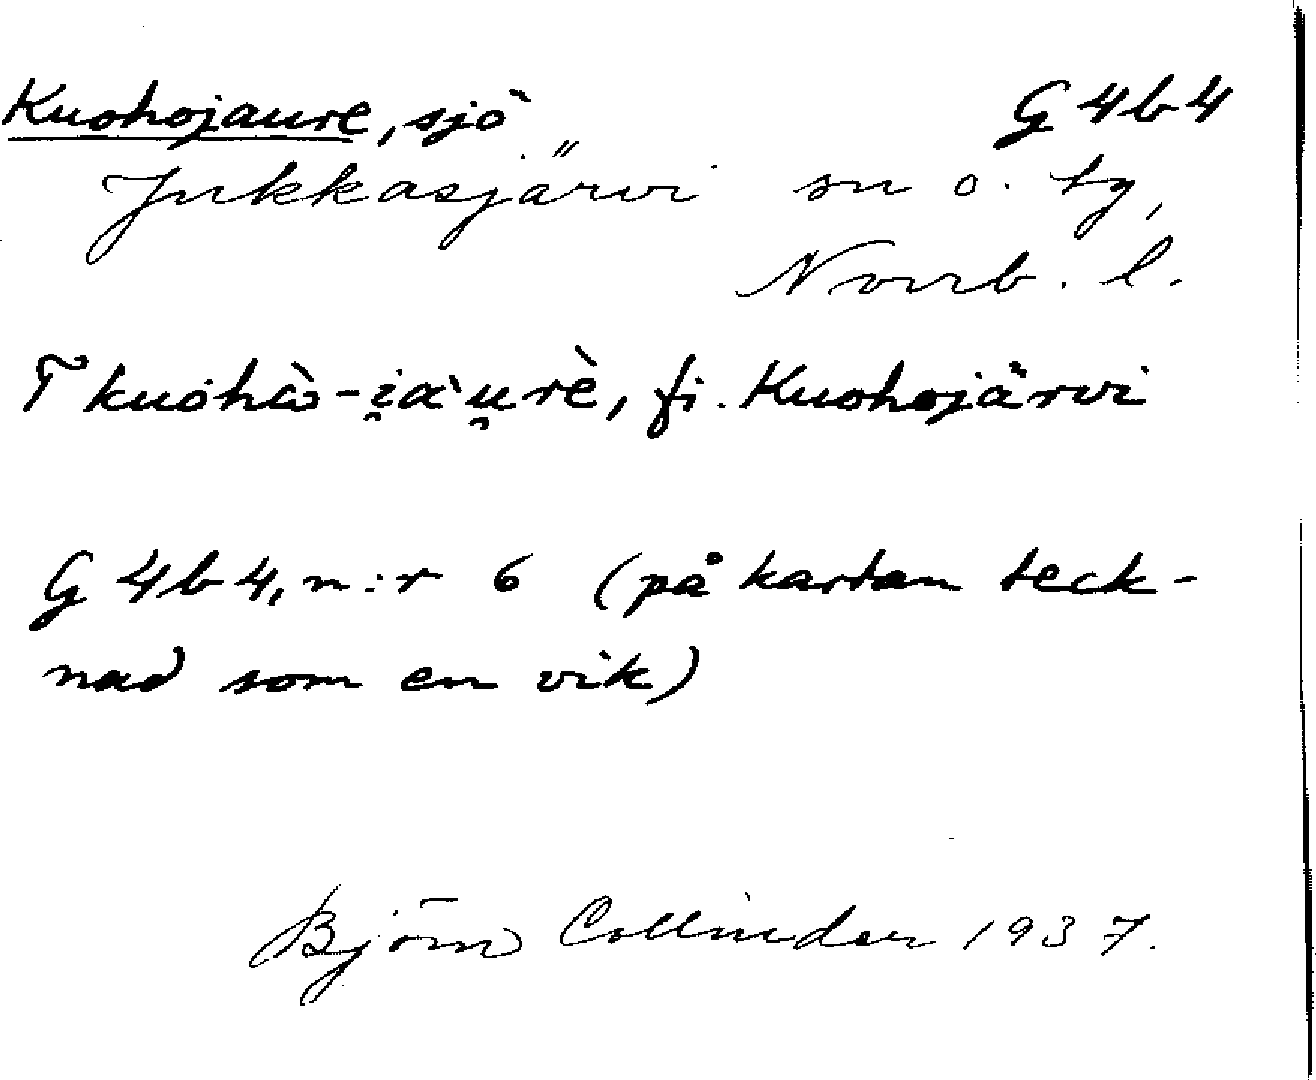 Kuohojaure, sjö G4b4
Jukkasjärvi sn o. tg,
Norrb. l.
T kuo̍hɷ̀-i̯a̍u̯rè, fi. Kuohojärvi
G4b4, n:r 6 (på kartan teck-
nad som en vik)
Björn Collinder 1937.